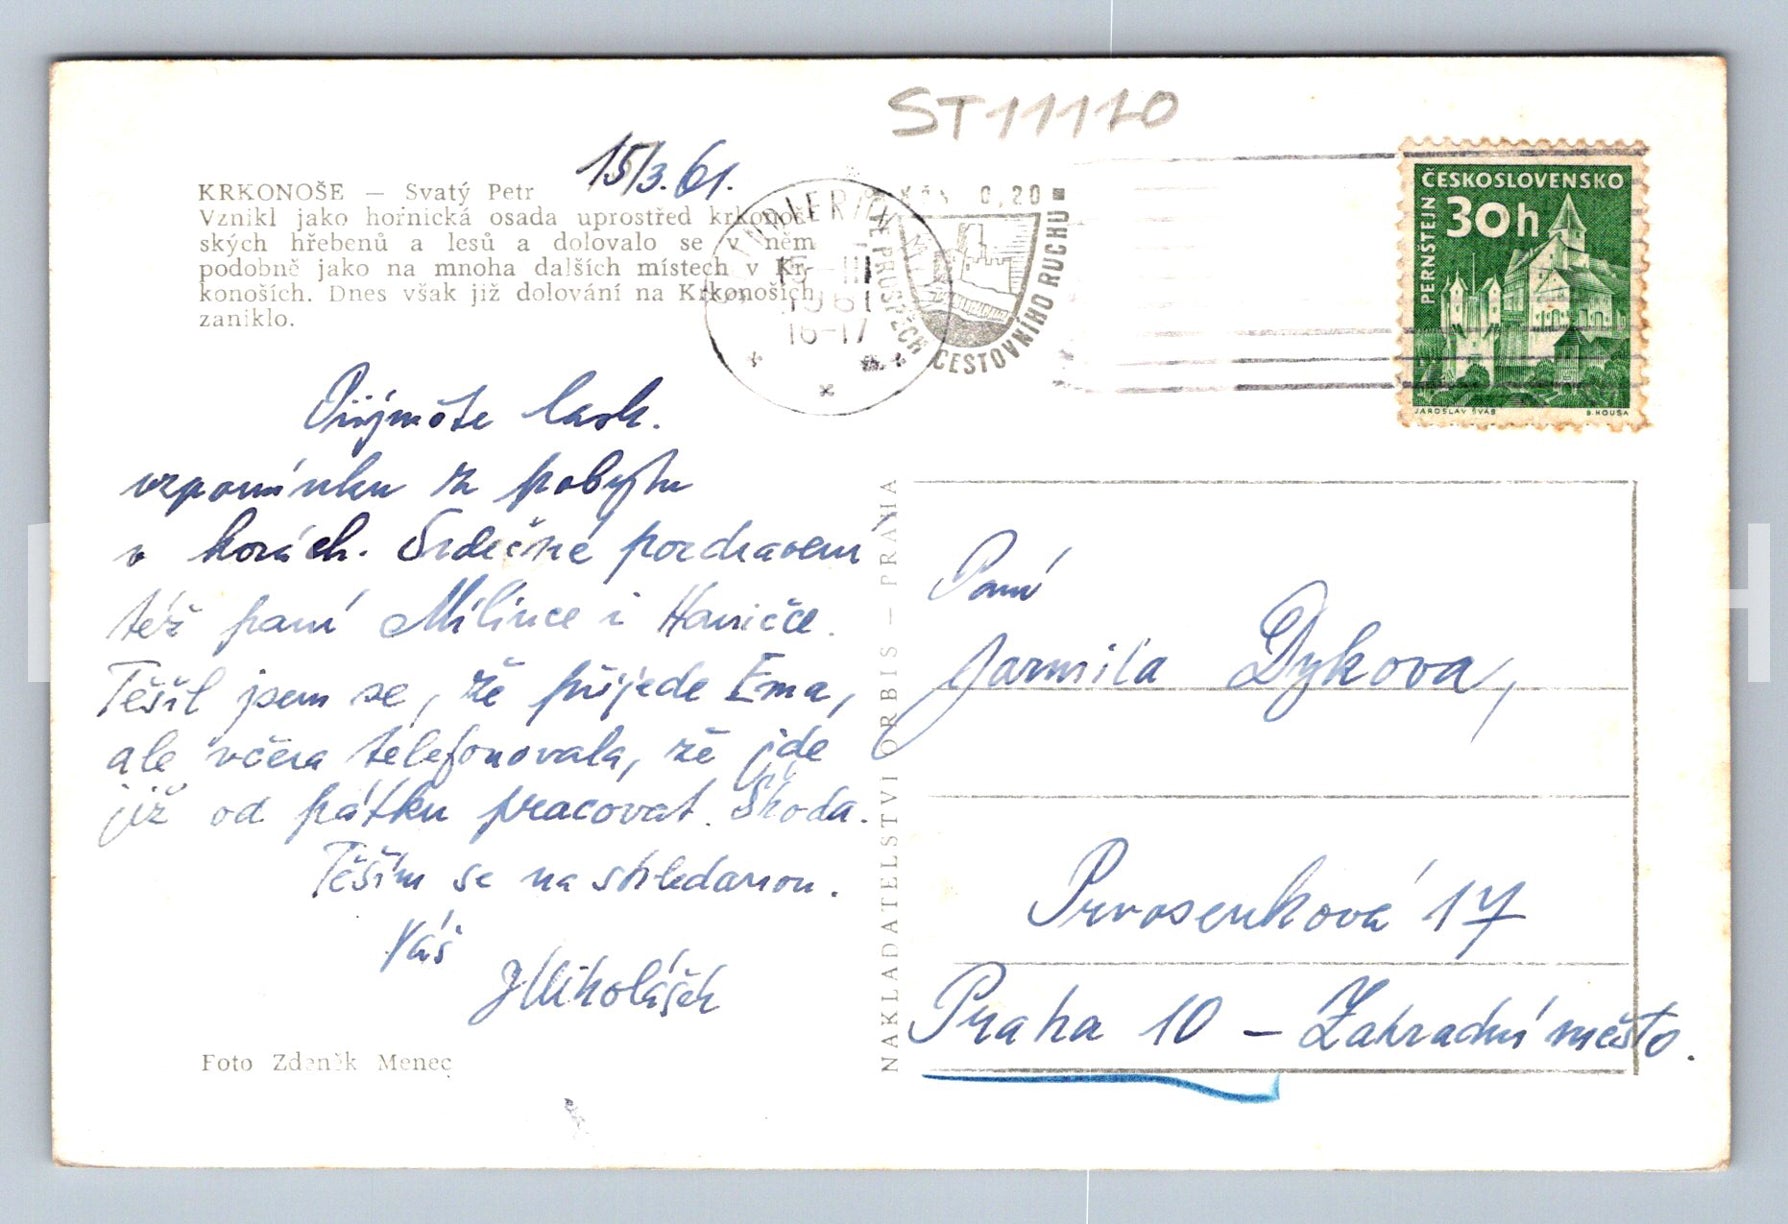 ST11110
15/3.61.
KRKONOŠE — Svatý Petr
Vznikl jako hornická osada uprostřed krkonoš-
ských hřebenů a lesů a dolovalo se v něm
podobně jako na mnoha dalších místech v Kr-
konoších. Dnes však již dolování na Krkonoších
zaniklo.
15-III
1961
16-17
Kčs 0,20
VE PROSPĚCH CESTOVNÍHO RUCHU
ČESKOSLOVENSKO
30h
PERNŠTEJN
JAROSLAV ŠVÁB
B.HOUSA
Přijměte lask.
vzpomínku z pobytu
v horách. Srdečně pozdravem
též paní Milince i Haničce.
Těšil jsem se, že přijede Ema,
ale včera telefonovala, že jde
již od pátku pracovat. Škoda.
Těším se na shledanou.
Váš
JMikolášek
Foto Zdeněk Menec
NAKLADATELSTVÍ ORBIS — PRAHA
Paní
Jarmila Dykova,
Prvosenková 17
Praha 10 — Zahradní město.